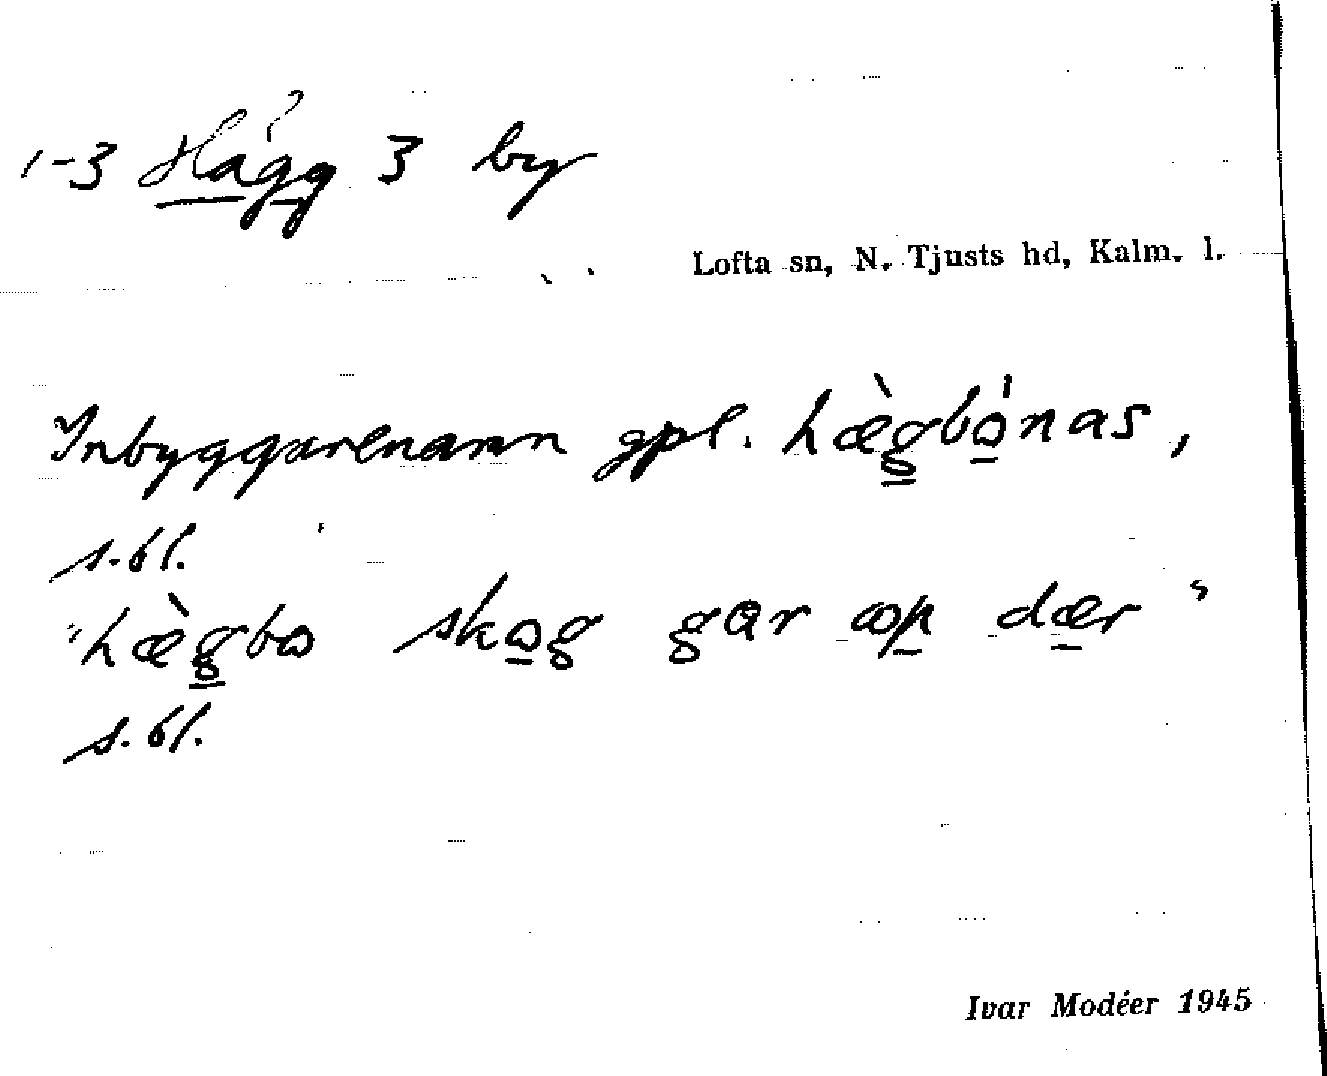 1-3 Hägg 3 by
Lofta sn, N. Tjusts hd, Kalm. l.
Inbyggarenamn gpl. hæ̀gbónas,
s.bl.
"hæ̀gbo skog gar op dær"
s.bl.
Ivar Modéer 1945